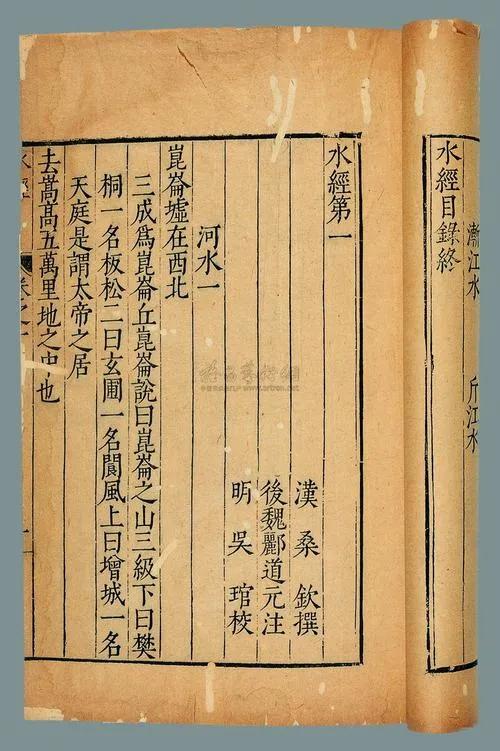 漸江水　斤江水
水經目錄終
水經第一
漢桑欽撰
後魏酈道元注
明吳琯校
河水一
崑崙墟在西北
三成爲崑崙丘崑崙說曰崑崙之山三級下曰樊
桐一名板松二曰玄圃一名閬風上曰增城一名
天庭是謂太帝之居
去嵩高五萬里地之中也
水經 卷之一